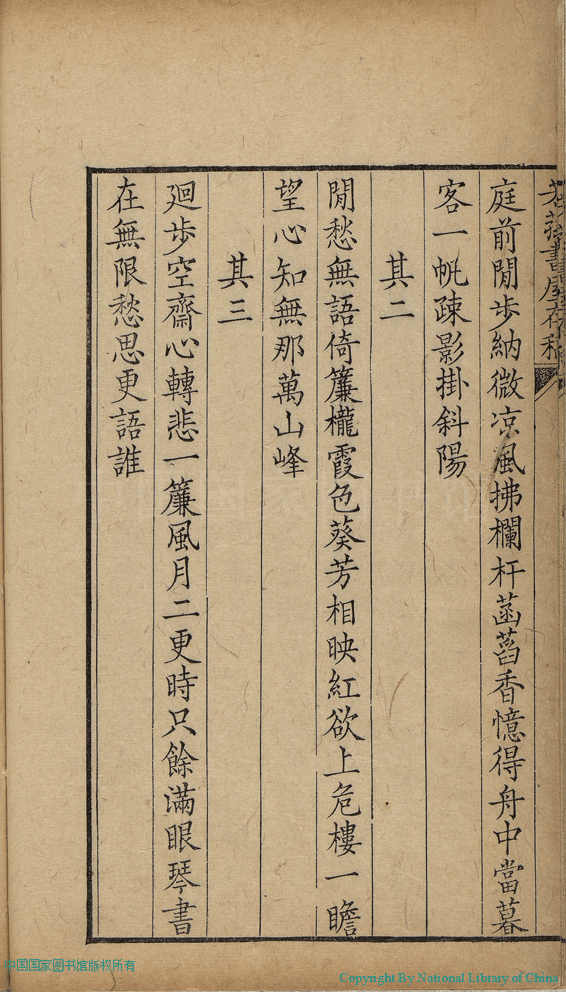 書屋存稿
庭前閒步納微凉風拂欄杆菡萏香憶得舟中當暮
客一帆疎影掛斜陽
其二
閒愁無語倚簾櫳霞色葵芳相映紅欲上危樓一瞻
望心知無那萬山峰
其三
廻步空齋心轉悲一簾風月二更時只餘滿眼琴書
在無限愁思更語誰
中国国家图书馆版权所有
Copyright By National Library of China